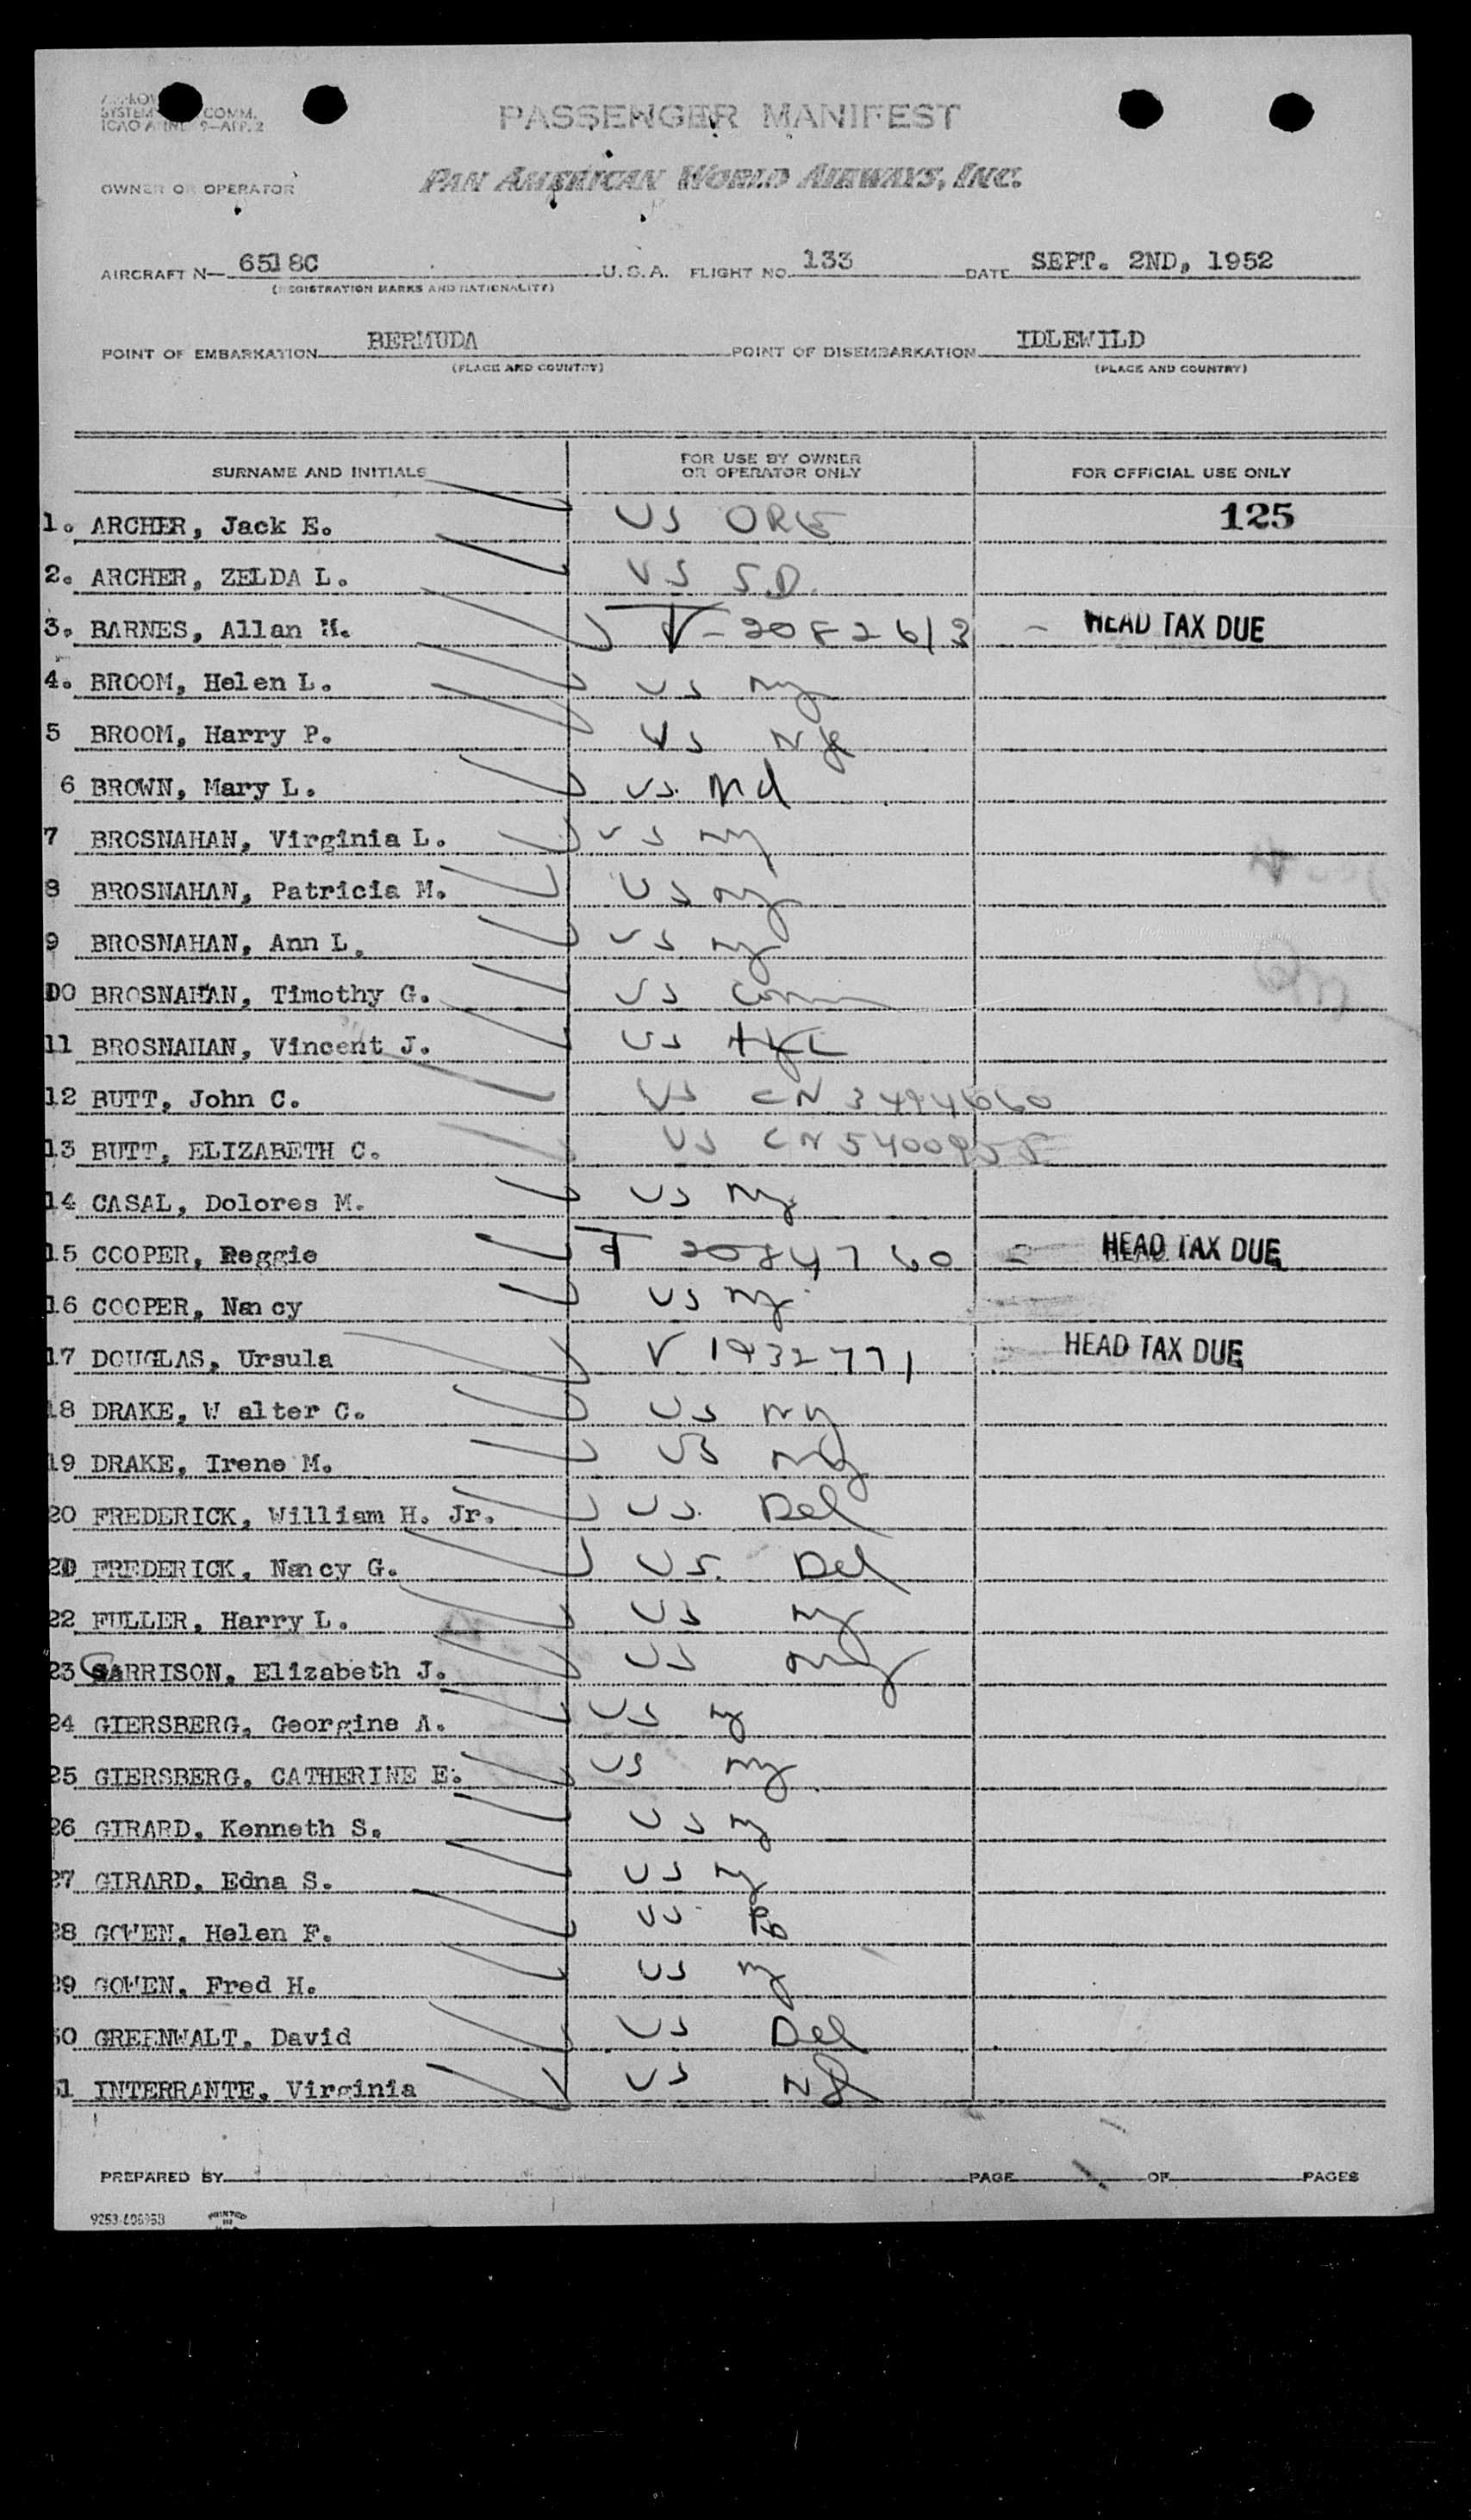 PASSENGER MANIFEST
OWNER OR OPERATOR PAN AMERICAN WORLD AIRWAYS, INC.
AIRCRAFT N— 6518C U.S.A. FLIGHT NO. 133 DATE SEPT. 2ND, 1952
(REGISTRATION MARKS AND NATIONALITY)
POINT OF EMBARKATION BERMUDA POINT OF DISEMBARKATION IDLEWILD
(PLACE AND COUNTRY) (PLACE AND COUNTRY)
SURNAME AND INITIALS FOR USE BY OWNER OR OPERATOR ONLY FOR OFFICIAL USE ONLY
1. ARCHER, Jack E. US ORE 125
2. ARCHER, ZELDA L. US S.D.
3. BARNES, Allan H. HEAD TAX DUE
4. BROOM, Helen L. US ny
5 BROOM, Harry P. US
6 BROWN, Mary L. US. Md
7 BROSNAHAN, Virginia L. US ny
8 BROSNAHAN, Patricia M. US ny
9 BROSNAHAN, Ann L. US ny
BROSNAHAN, Timothy G. US Conn
11 BROSNAHAN, Vincent J. US
12 BUTT, John C. US CN
13 BUTT, ELIZABETH C. US CN
14 CASAL, Dolores M. US Ny
15 COOPER, Reggie HEAD TAX DUE
16 COOPER, Nancy US Ny
17 DOUGLAS, Ursula V 1932771 HEAD TAX DUE
18 DRAKE, W alter C. US NY
19 DRAKE, Irene M. US Ny
20 FREDERICK, William H. Jr. US. Del
FREDERICK, Nancy G. US. Del
22 FULLER, Harry L. US ny
23 GARRISON, Elizabeth J. US ny
24 GIERSBERG, Georgine A. US ny
25 GIERSBERG, CATHERINE E. US ny
26 GIRARD, Kenneth S. US ny
27 GIRARD, Edna S. US ny
28 GOWEN, Helen F. US
29 GOWEN, Fred H. US ny
30 GREENWALT, David US Del
31 INTERRANTE, Virginia US
PREPARED BY PAGE OF PAGES